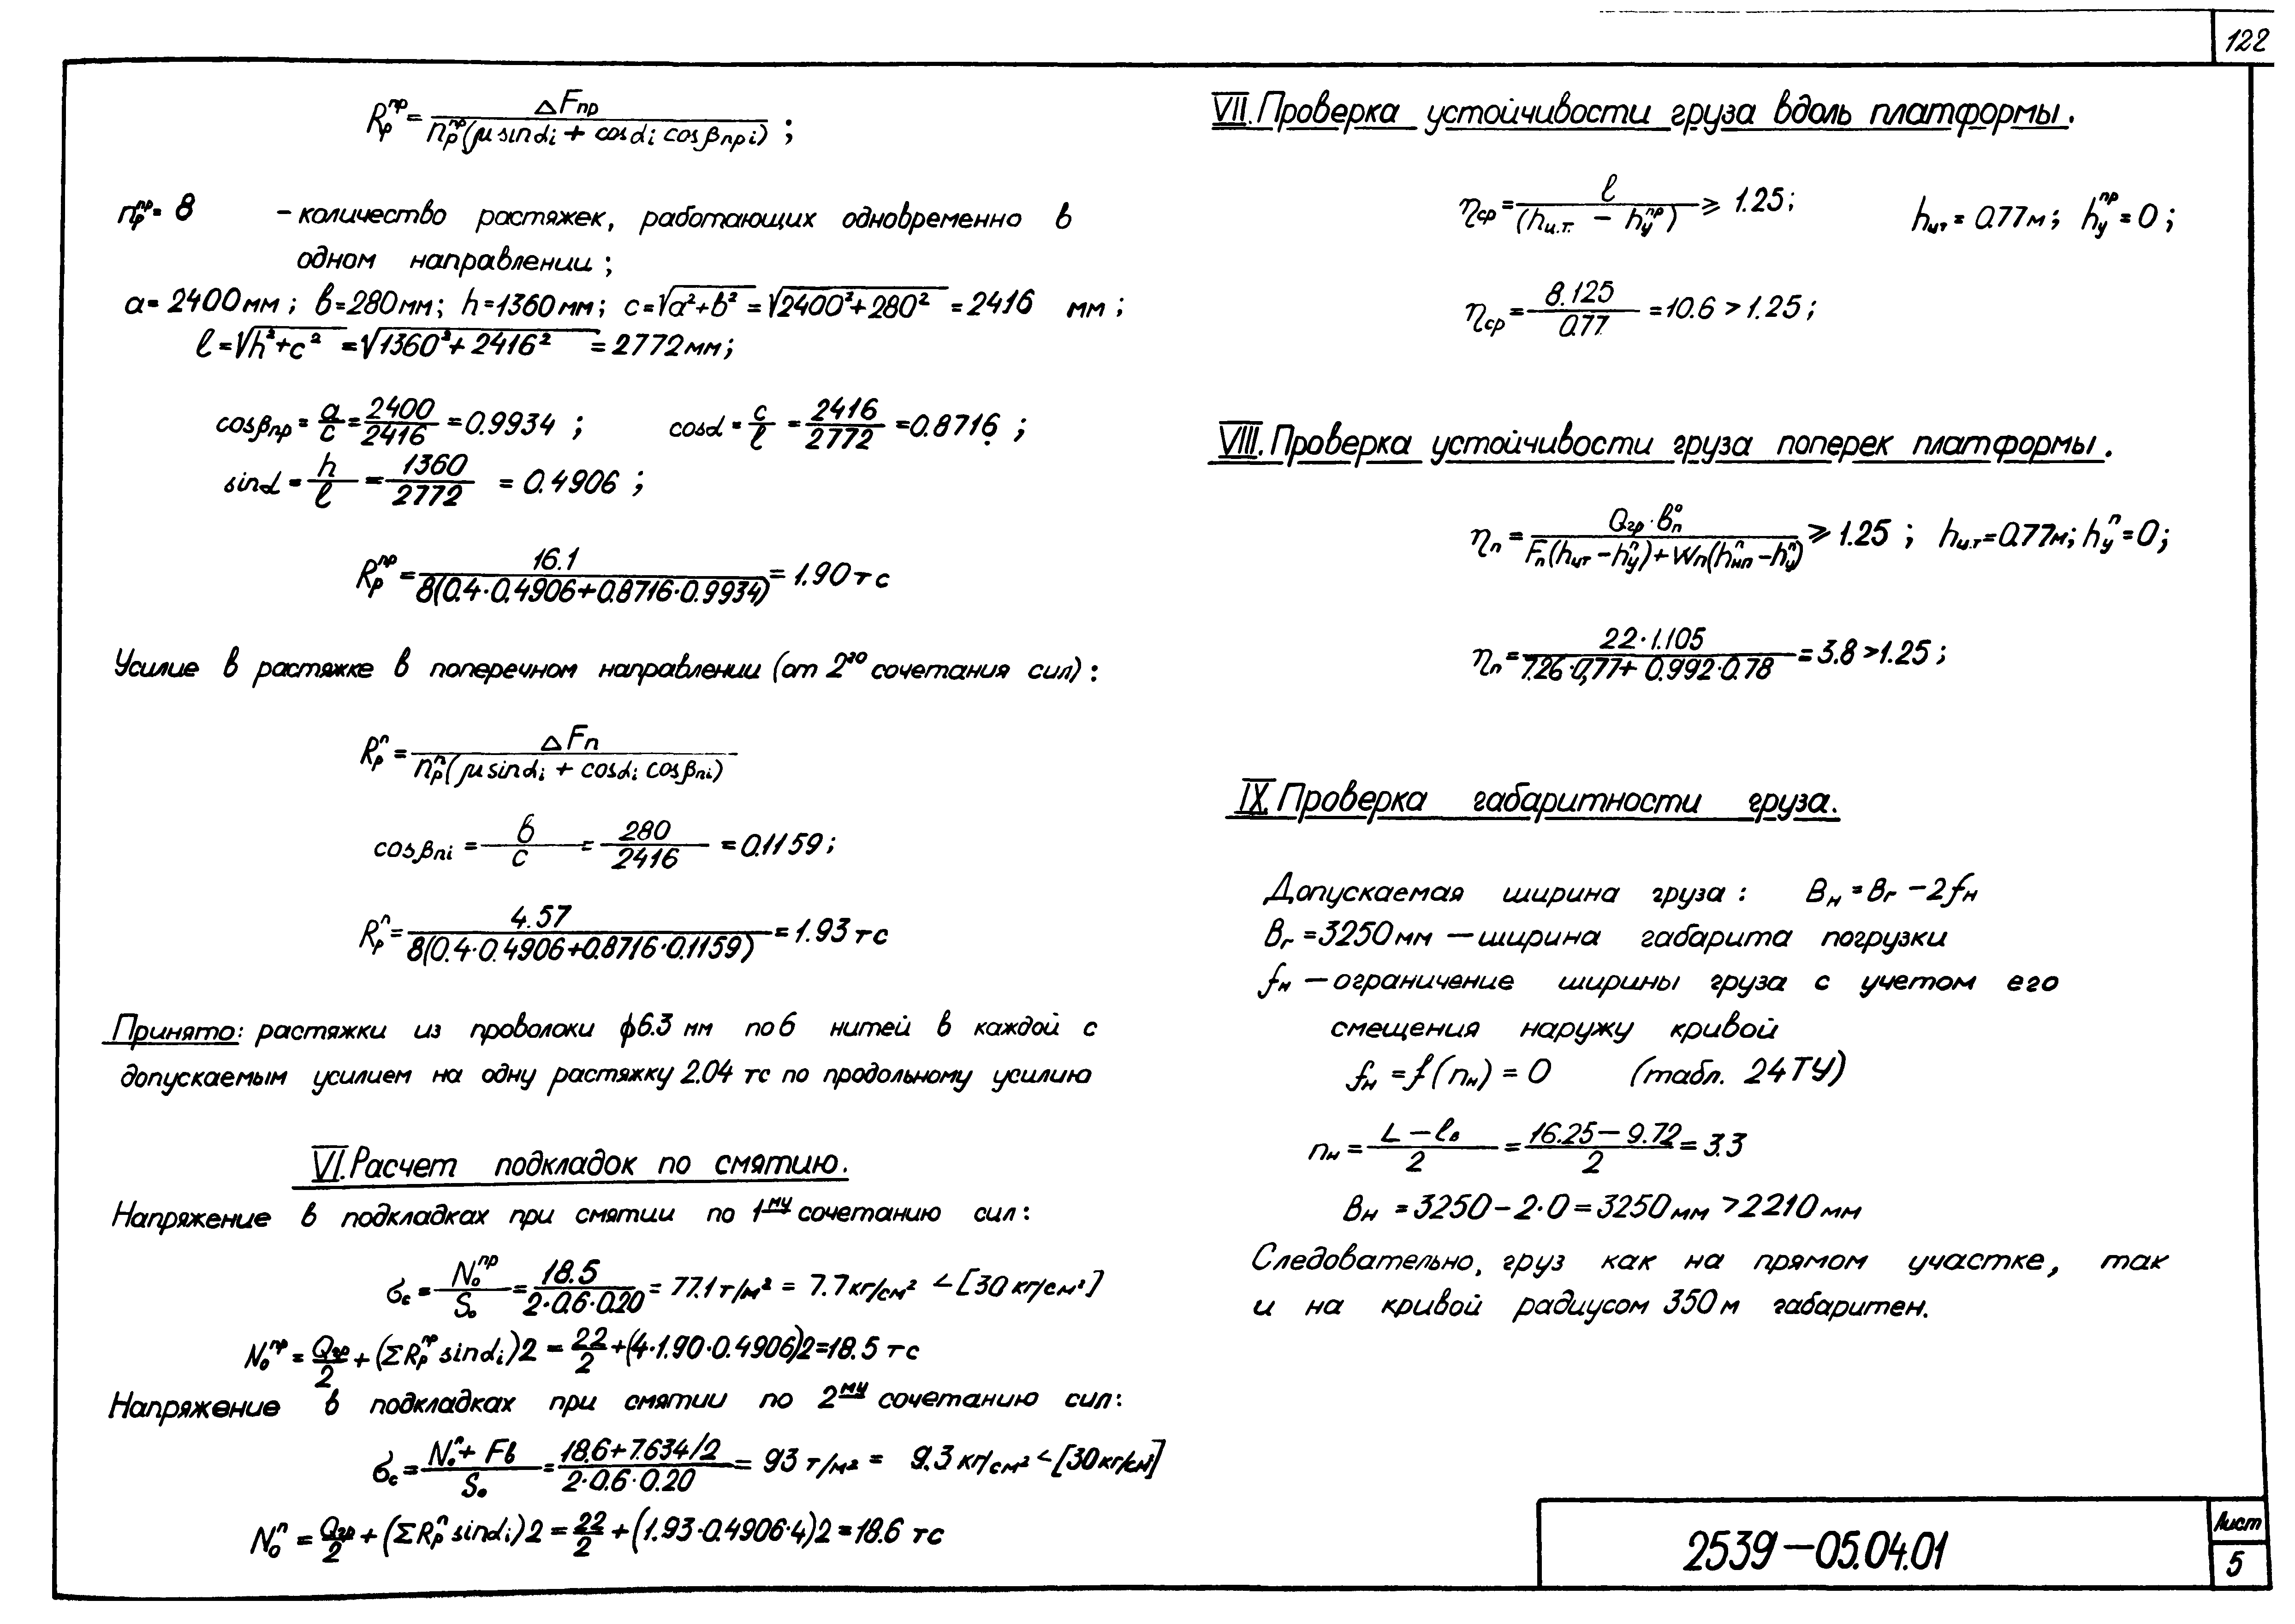 122
R_р^пр = ΔFпр / n_р^пр(μ sinαi + cosαi cosβпрi) ;
n_р^пр = 8 – количество растяжек, работающих одновременно в
одном направлении ;
a = 2400 мм ; в = 280 мм ; h = 1360 мм ; c = √a²+b² = √2400²+280² = 2416 мм ;
ℓ = √h²+c² = √1360²+2416² = 2772 мм ;
cosβпр = a/c = 2400/2416 = 0.9934 ; cosα = c/ℓ = 2416/2772 = 0.8716 ;
sinα = h/ℓ = 1360/2772 = 0.4906 ;
R_р^пр = 16.1 / 8(0.4·0.4906+0.8716·0.9934) = 1.90 тс
Усилие в растяжке в поперечном направлении (от 2го сочетания сил) :
R_р^п = ΔFп / n_р^п(μ sinαi + cosαi cosβпi)
cosβпi = в/с = 280/2416 = 0.1159 ;
R_р^п = 4.57 / 8(0.4·0.4906+0.8716·0.1159) = 1.93 тс
Принято: растяжки из проволоки ф6.3 мм по 6 нитей в каждой с
допускаемым усилием на одну растяжку 2.04 тс по продольному усилию
VI. Расчет подкладок по смятию.
Напряжение в подкладках при смятии по 1му сочетанию сил :
σс = N_о^пр / Sо = 18.5 / 2·0.6·0.20 = 77.1 т/м² = 7.7 кг/см² < [30 кг/см²]
N_о^пр = Qгр/2 + (ΣR_р^пр sinαi)2 = 22/2 + (4·1.90·0.4906)2 = 18.5 тс
Напряжение в подкладках при смятии по 2му сочетанию сил :
σс = N_о^п + Fв / Sо = 18.6+7.634/2 / 2·0.6·0.20 = 93 т/м² = 9.3 кг/см² < [30 кг/см²]
N_о^п = Qгр/2 + (ΣR_р^п sinαi)2 = 22/2 + (1.93·0.4906·4)2 = 18.6 тс
VII. Проверка устойчивости груза вдоль платформы.
ηср = ℓ / (hц.т. – h_у^пр) ⩾ 1.25 ; hцт = 0.77 м ; h_у^пр = 0 ;
ηср = 8.125 / 0.77 = 10.6 > 1.25 ;
VIII. Проверка устойчивости груза поперек платформы.
ηп = Qгр · в_п^о / Fп(hцт – h_у^п) + Wп(h_нп^п – h_у^п) ⩾ 1.25 ; hц.т = 0.77 м ; h_у^п = 0 ;
ηп = 22·1.105 / 7.26·0,77+ 0.992·0.78 = 3.8 > 1.25 ;
IX. Проверка габаритности груза.
Допускаемая ширина груза : Вн = Вг – 2fн
Вг = 3250 мм – ширина габарита погрузки
fн – ограничение ширины груза с учетом его
смещения наружу кривой
fн = f(nн) = 0 (табл. 24 ТУ)
nн = L – ℓв / 2 = 16.25 – 9.72 / 2 = 3.3
Вн = 3250 – 2·0 = 3250 мм > 2210 мм
Следовательно, груз как на прямом участке, так
и на кривой радиусом 350 м габаритен.
2539–05.04.01
Лист
5